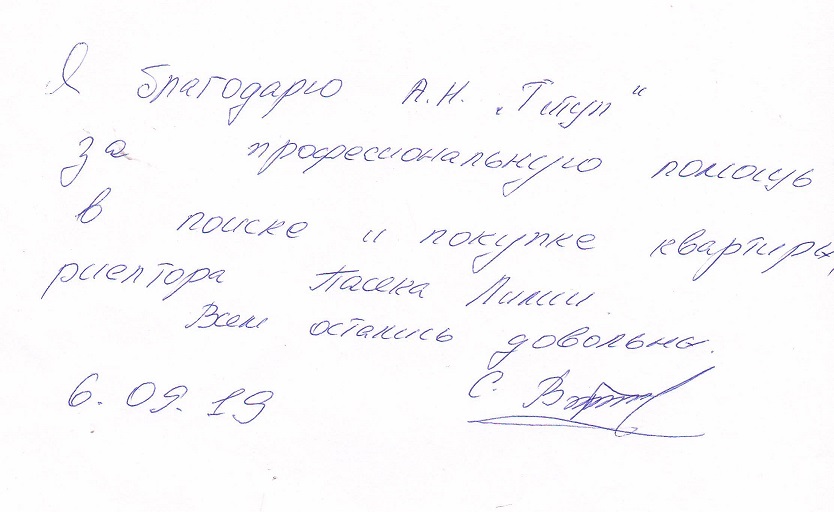 Я благодарю А.Н. „Титул“
за профессиональную помощь
в поиске и покупке квартиры,
риелтора Пасека Лилии
Всем остались довольны.
6.09.19 С.